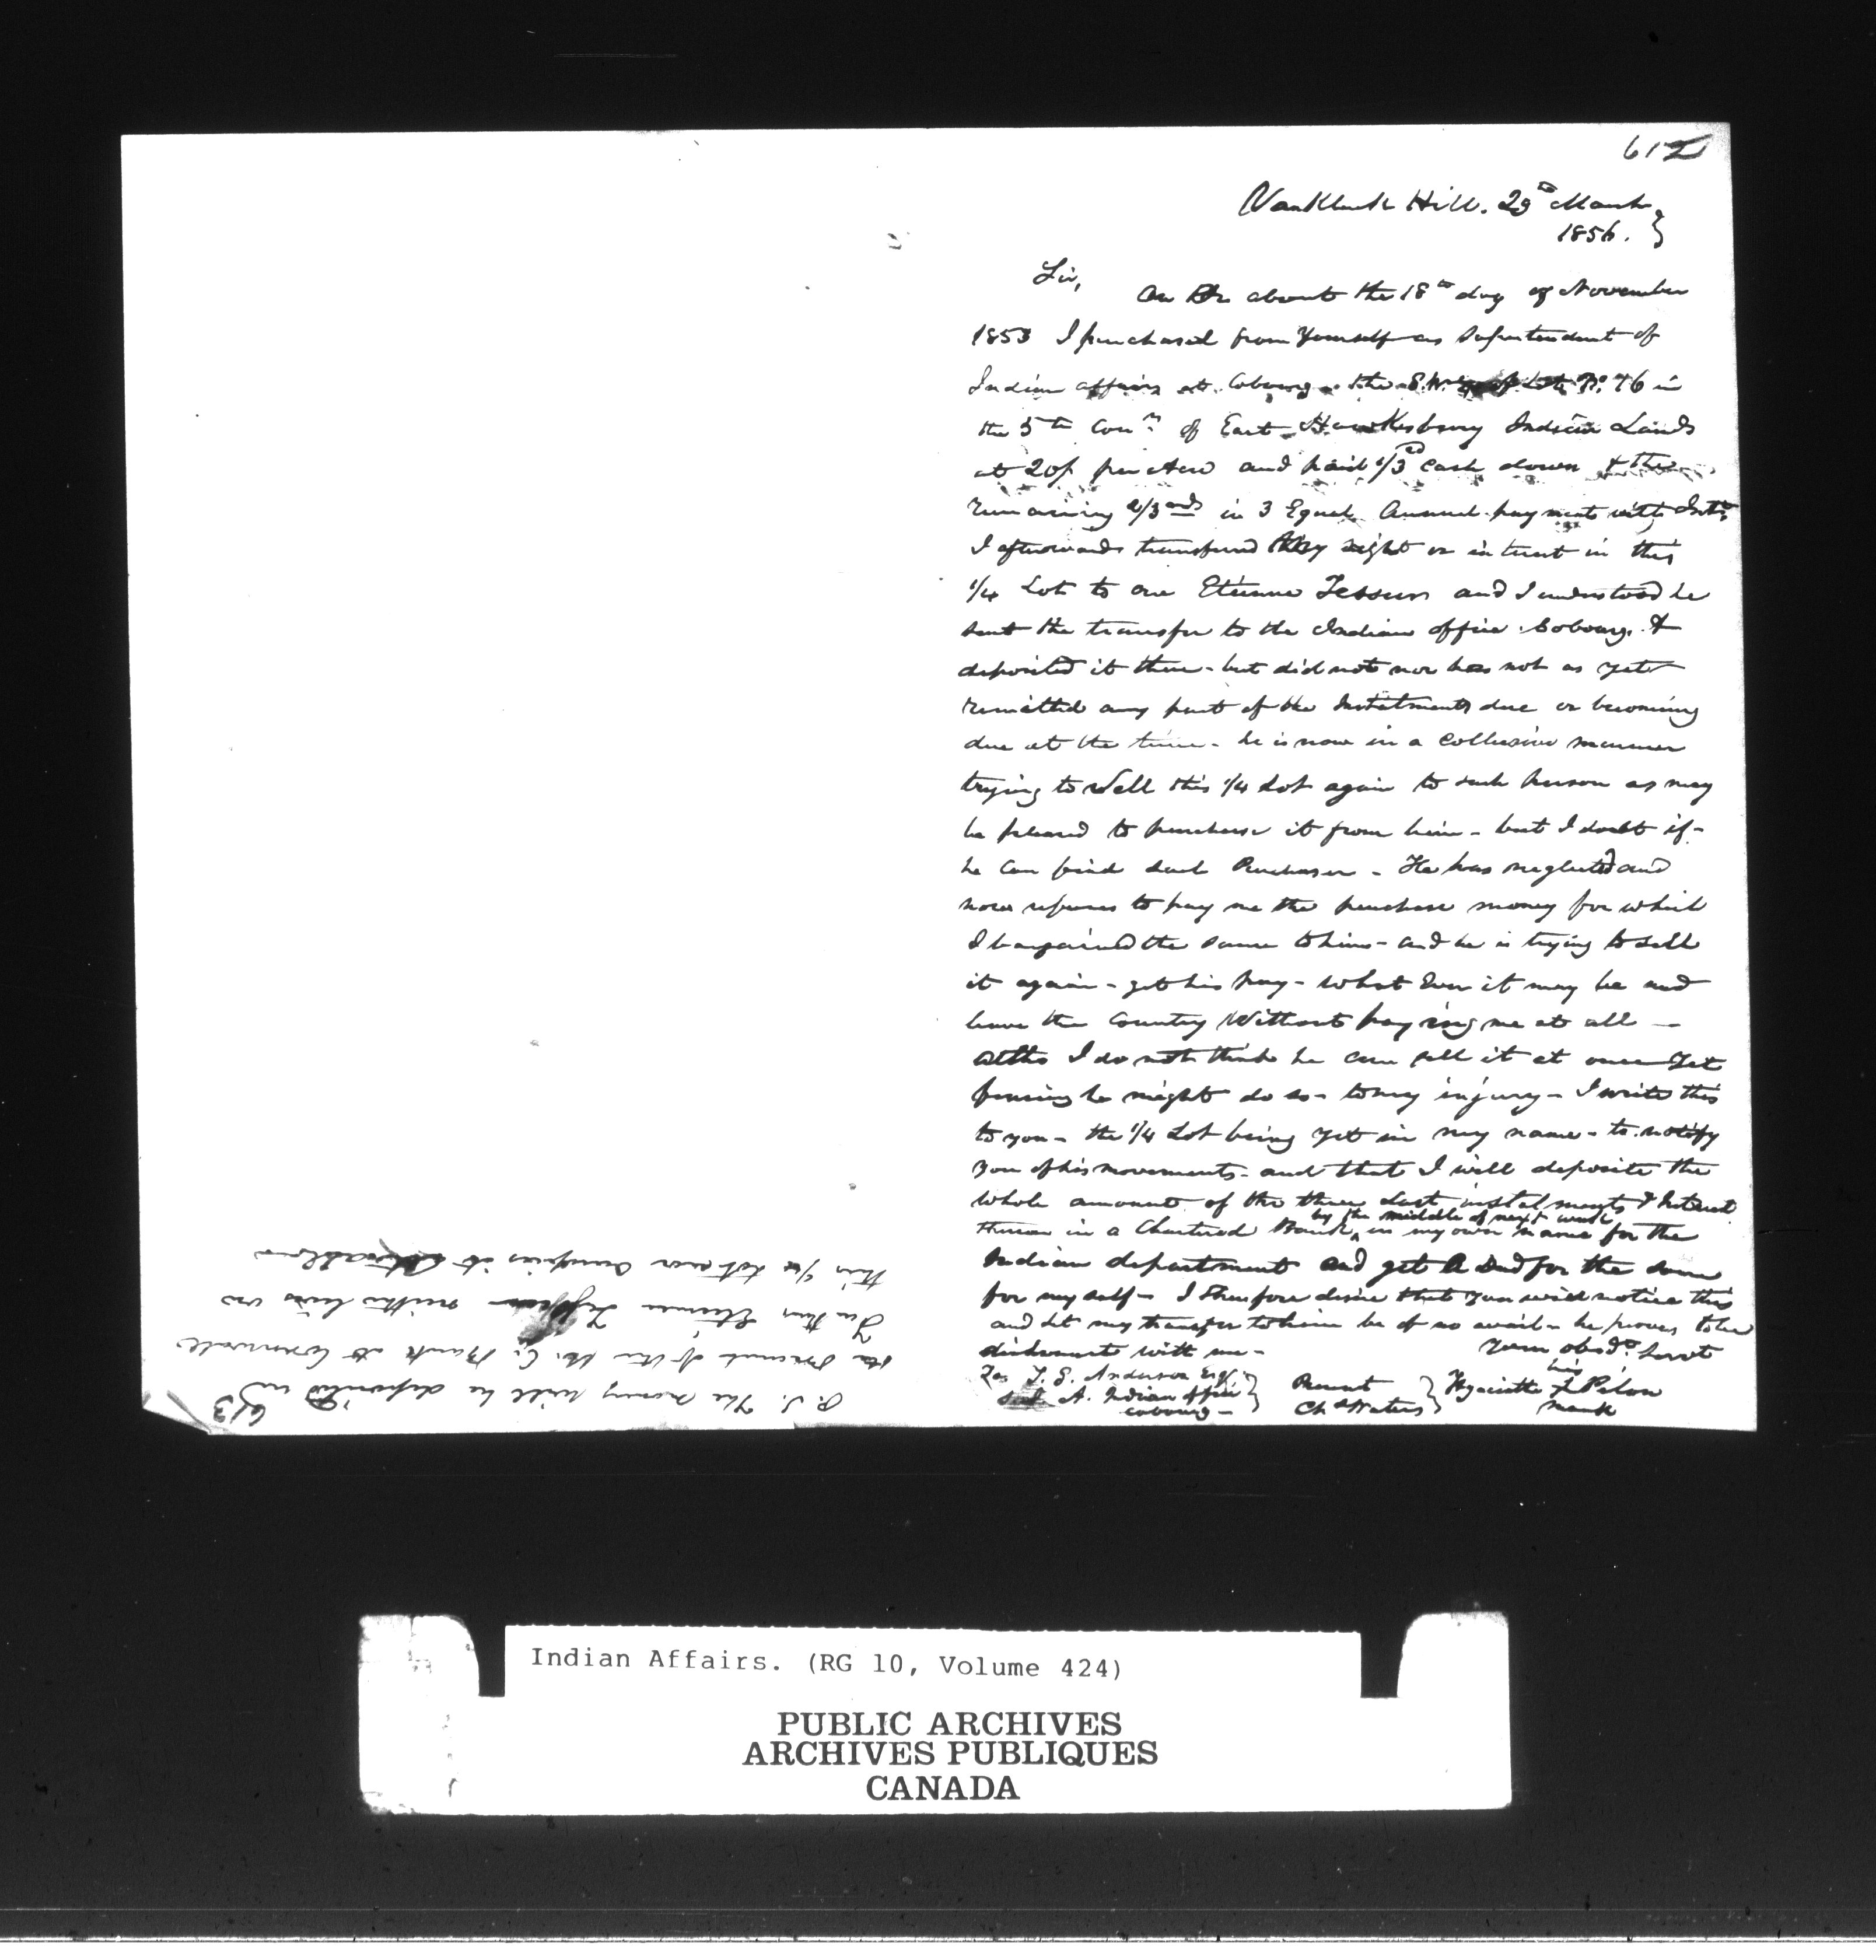 612
VanKleek Hill. 29th March
1856.
Sir,
On or about the 18th day of November
1853 I purchased from Yourself as Suprintendent of
Indian affairs at Cobourg - the S.W. 1/4 of Lot No. 16 in
the 5th Conn. of East Hawkesbury Indian Lands
at 20/ per Acre and paid 1/3rd cash down & the
remaining 2/3rds in 3 Equal Annual payments with Intt.
I afterwards transferred My right or interest in this
1/4 Lot to one Etienne Tessier and I understood he
sent the transfer to the Indian office Cobourg &
deposited it there - but did not nor has not as yet
remitted any part of the Instalments due or becoming
due at the time - he is now in a collusive manner
trying to sell this 1/4 Lot again to such person as may
be pleased to purchase it from him - but I doubt if
he can find such Purchaser - He has neglected and
now refuses to pay me the purchase money for which
I bargained the same to him - and he is trying to sell
it again - get his pay - what Ever it may be and
leave the Country Without paying me at all -
altho I do not think he can sell it at once Yet
fearing he might do so - to my injury - I write this
to you - the 1/4 Lot being yet in my name - to notify
you of his movements - and that I will deposite the
whole amount of the three Last instalments & Interest
thereon in a Chartered Bank by the middle of next week in my own name for the
Indian department and get A Deed for the same
for my self - I therefore desire that you will notice this
and let my transfer to him be of no avail - he proves to be
dishonest with me -
Your obedt. Servt
To T. G. Anderson Esqr.
S. I. A. Indian office
Cobourg -
Present
Chs Waters
his
Hyacinthe X Pilon
mark
613
P.S. The money will be deposited in
the Branch of the U. C. Bank at Cornwall
Further Etienne Tessier neither lives on
this 1/4 Lot nor occupies it
Indian Affairs. (RG 10, Volume 424)
PUBLIC ARCHIVES
ARCHIVES PUBLIQUES
CANADA